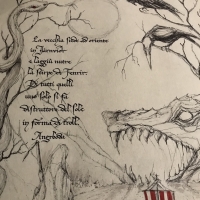 La vecchia siede a oriente
in Jarnviðr
e laggiù nutre
la stirpe di Fenrir:
Di tutti quelli
uno solo si fa
distruttore del sole
in forma di troll.
Angrboða